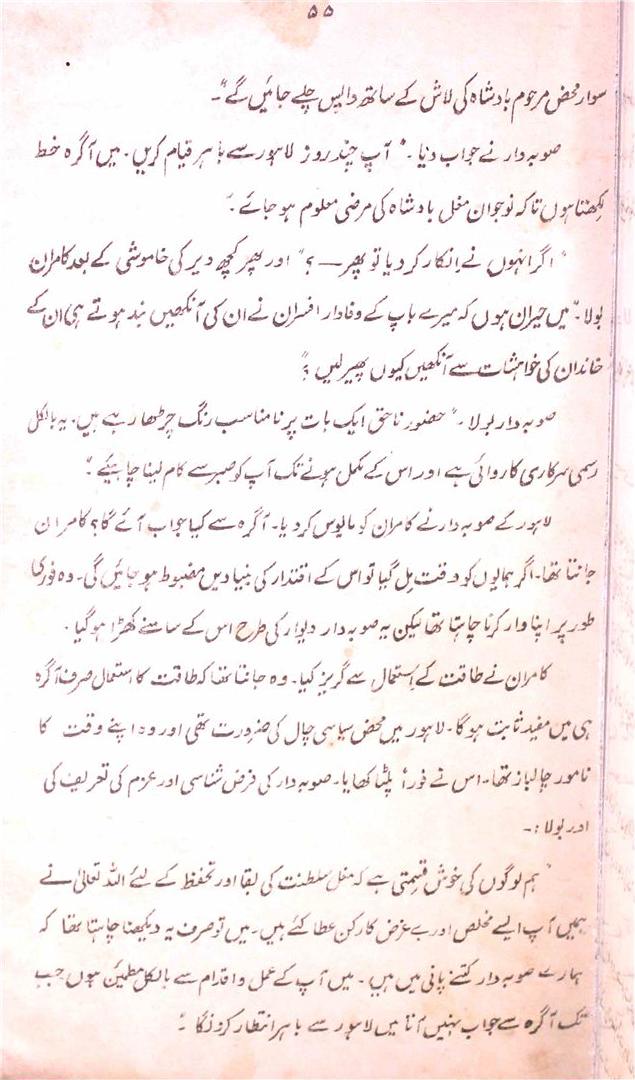 ۵۵
سوار محض مرحوم بادشاہ کی لاش کے ساتھ واپس چلے جائیں گے"۔
صوبہ دار نے جواب دیا۔ "آپ چند روز لاہور سے باہر قیام کریں۔ میں آگرہ خط
لکھتا ہوں تاکہ نوجوان مغل بادشاہ کی مرضی معلوم ہو جائے۔"
"اگر انہوں نے انکار کر دیا تو پھر — ؟" اور پھر کچھ دیر کی خاموشی کے بعد کامران
بولا۔ "میں حیران ہوں کہ میرے باپ کے وفادار افسران نے ان کی آنکھیں بند ہوتے ہی ان کے
خاندان کی خواہشات سے آنکھیں کیوں پھیر لیں ؟"
صوبہ دار بولا۔ "حضور ناحق ایک بات پر نامناسب رنگ چڑھا رہے ہیں۔ یہ بالکل
رسمی سرکاری کاروائی ہے اور اس کے مکمل ہونے تک آپ کو صبر سے کام لینا چاہئیے ۔"
لاہور کے صوبہ دار نے کامران کو مایوس کر دیا۔ آگرہ سے کیا جواب آئے گا؟ کامران
جانتا تھا۔ اگر ہمایوں کو وقت مل گیا تو اس کے اقتدار کی بنیادیں مضبوط ہو جائیں گی۔ وہ فوری
طور پر اپنا وار کرنا چاہتا تھا لیکن یہ صوبہ دار دیوار کی طرح اس کے سامنے کھڑا ہو گیا ۔
کامران نے طاقت کے استعمال سے گریز کیا۔ وہ جانتا تھا کہ طاقت کا استعمال صرف آگرہ
ہی میں مفید ثابت ہو گا۔ لاہور میں محض سیاسی چال کی ضرورت تھی اور وہ اپنے وقت کا
نامور چالباز تھا۔ اس نے فوراً پلٹا کھایا۔ صوبہ دار کی فرض شناسی اور عزم کی تعریف کی
اور بولا :۔
"ہم لوگوں کی خوش قسمتی ہے کہ مغل سلطنت کی بقا اور تحفظ کے لیئے اللہ تعالیٰ نے
ہمیں آپ ایسے مخلص اور بے غرض کارکن عطا کئے ہیں۔ میں تو صرف یہ دیکھنا چاہتا تھا کہ
ہمارے صوبہ دار کتنے پانی میں ہیں۔ میں آپ کے عمل و اقدام سے بالکل مطمئن ہوں جب
تک آگرہ سے جواب نہیں آتا میں لاہور سے باہر انتظار کروں گا ۔"